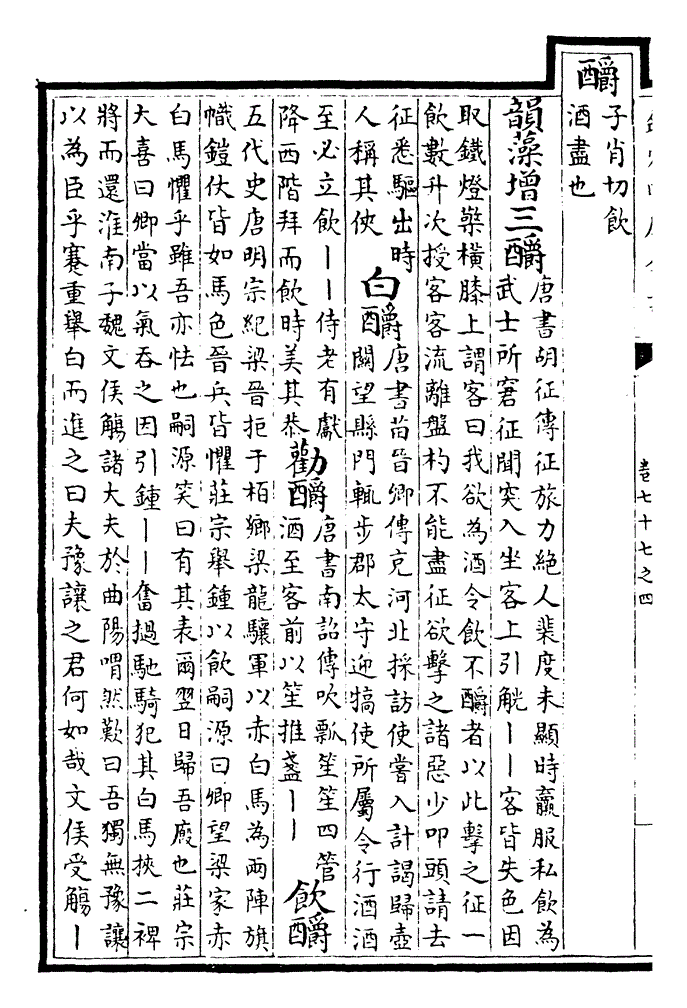 釂
子肖切飲
酒盡也
韻藻增三釂
唐書胡征傳征旅力絶人裴度未顯時羸服私飲為
武士所窘征聞突入坐客上引觥丨丨客皆失色因
取鐵燈檠橫膝上謂客曰我欲為酒令飲不釂者以此擊之征一
飲數升次授客客流離盤杓不能盡征欲擊之諸惡少叩頭請去
征悉驅出時
人稱其俠
白釂
唐書苗晉卿傳充河北採訪使嘗入計謁歸壺
關望縣門輒步郡太守迎犒使所屬令行酒酒
至必立飲丨丨侍老有獻
降西階拜而飲時美其恭
勸釂
唐書南詔傳吹瓢笙笙四管
酒至客前以笙推盞丨丨
飲釂
五代史唐明宗紀梁晉拒于栢鄉梁龍驤軍以赤白馬為兩陣旗
幟鎧仗皆如馬色晉兵皆懼莊宗舉鍾以飲嗣源曰卿望梁家赤
白馬懼乎雖吾亦怯也嗣源笑曰有其表爾翌日歸吾廄也莊宗
大喜曰卿當以氣吞之因引鍾丨丨奮撾馳騎犯其白馬挾二裨
將而還淮南子魏文侯觴諸大夫於曲陽喟然歎曰吾獨無豫讓
以為臣乎蹇重舉白而進之曰夫豫讓之君何如哉文侯受觴丨
卷七十七之四